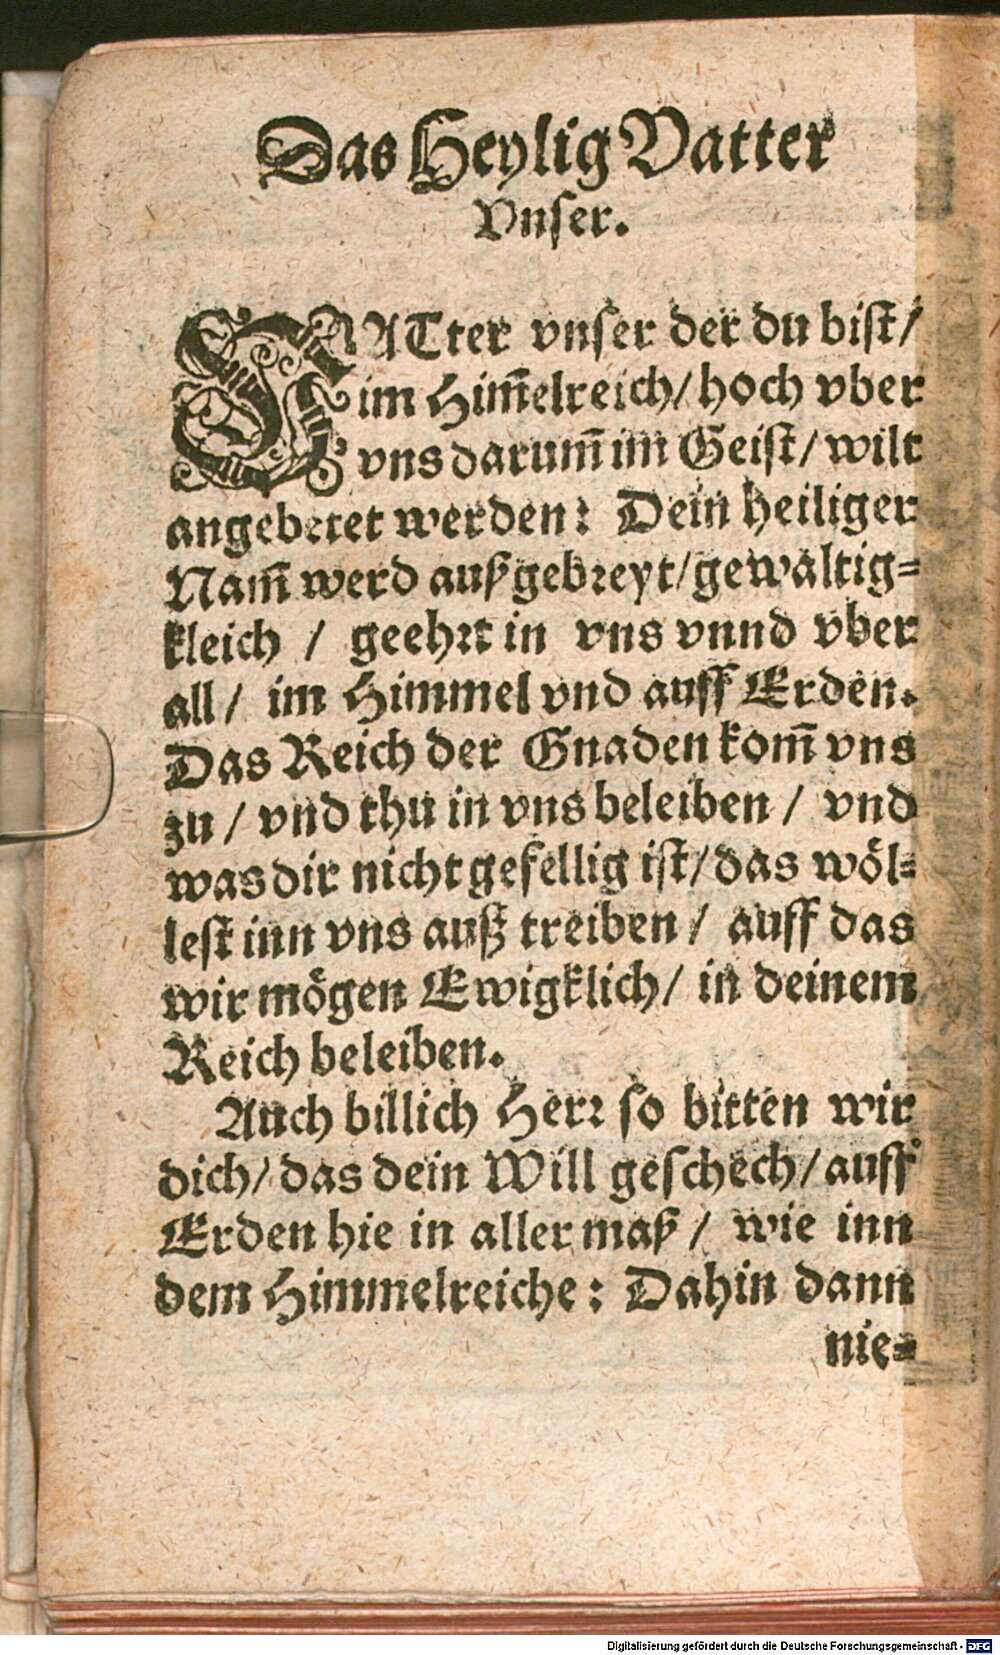 Das Heylig Vatter
Vnſer.
VATter vnſer der du biſt/
im Him̃elreich/ hoch vber
vns darum̃ im Geiſt/ wilt
angebetet werden: Dein heiliger
Nam̃ werd außgebꝛeyt/ gewaltig=
kleich / geehꝛt in vns vnnd vber
all / im Himmel vnd auff Erden.
Das Reich der Gnaden kom̃ vns
zu / vnd thu in vns beleiben / vnd
was dir nicht gefellig iſt/ das wöl=
leſt inn vns auß treiben / auff das
wir mögen Ewigklich/ in deinem
Reich beleiben.
Auch billich Herꝛ ſo bitten wir
dich/ das dein Will geſchech/ auff
Erden hie in aller maß / wie inn
dem Himmelreiche: Dahin dann
nie=
Digitalisierung gefördert durch die Deutsche Forschungsgemeinschaft - DFG